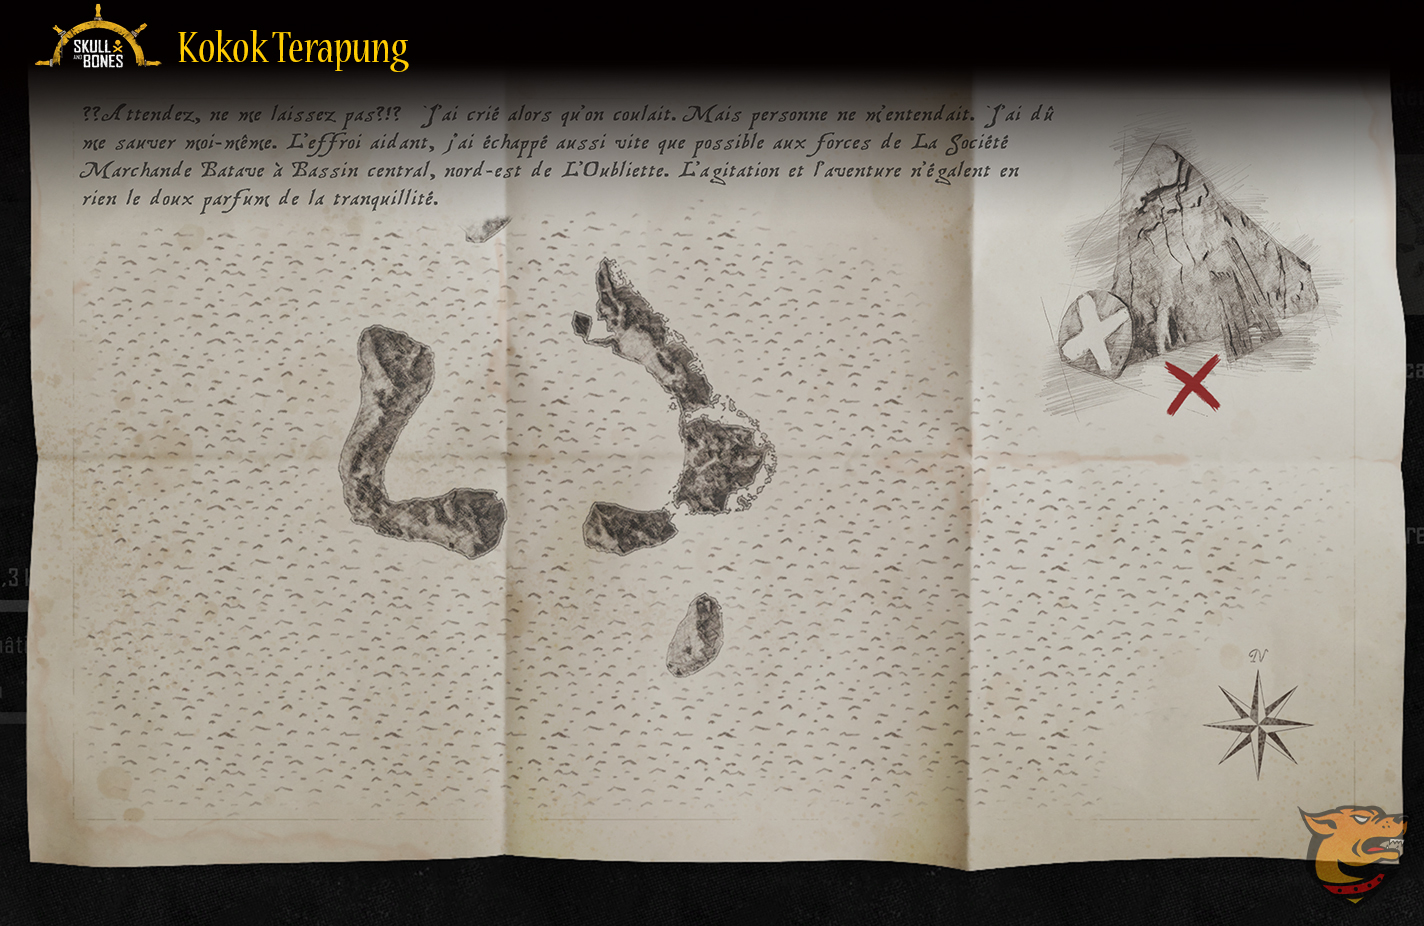 SKULL AND BONES
Kokok Terapung
??Attendez, ne me laissez pas?!? J'ai crié alors qu'on coulait. Mais personne ne m'entendait. J'ai dû
me sauver moi-même. L'effroi aidant, j'ai échappé aussi vite que possible aux forces de La Société
Marchande Batave à Bassin central, nord-est de L'Oubliette. L'agitation et l'aventure n'égalent en
rien le doux parfum de la tranquillité.
N